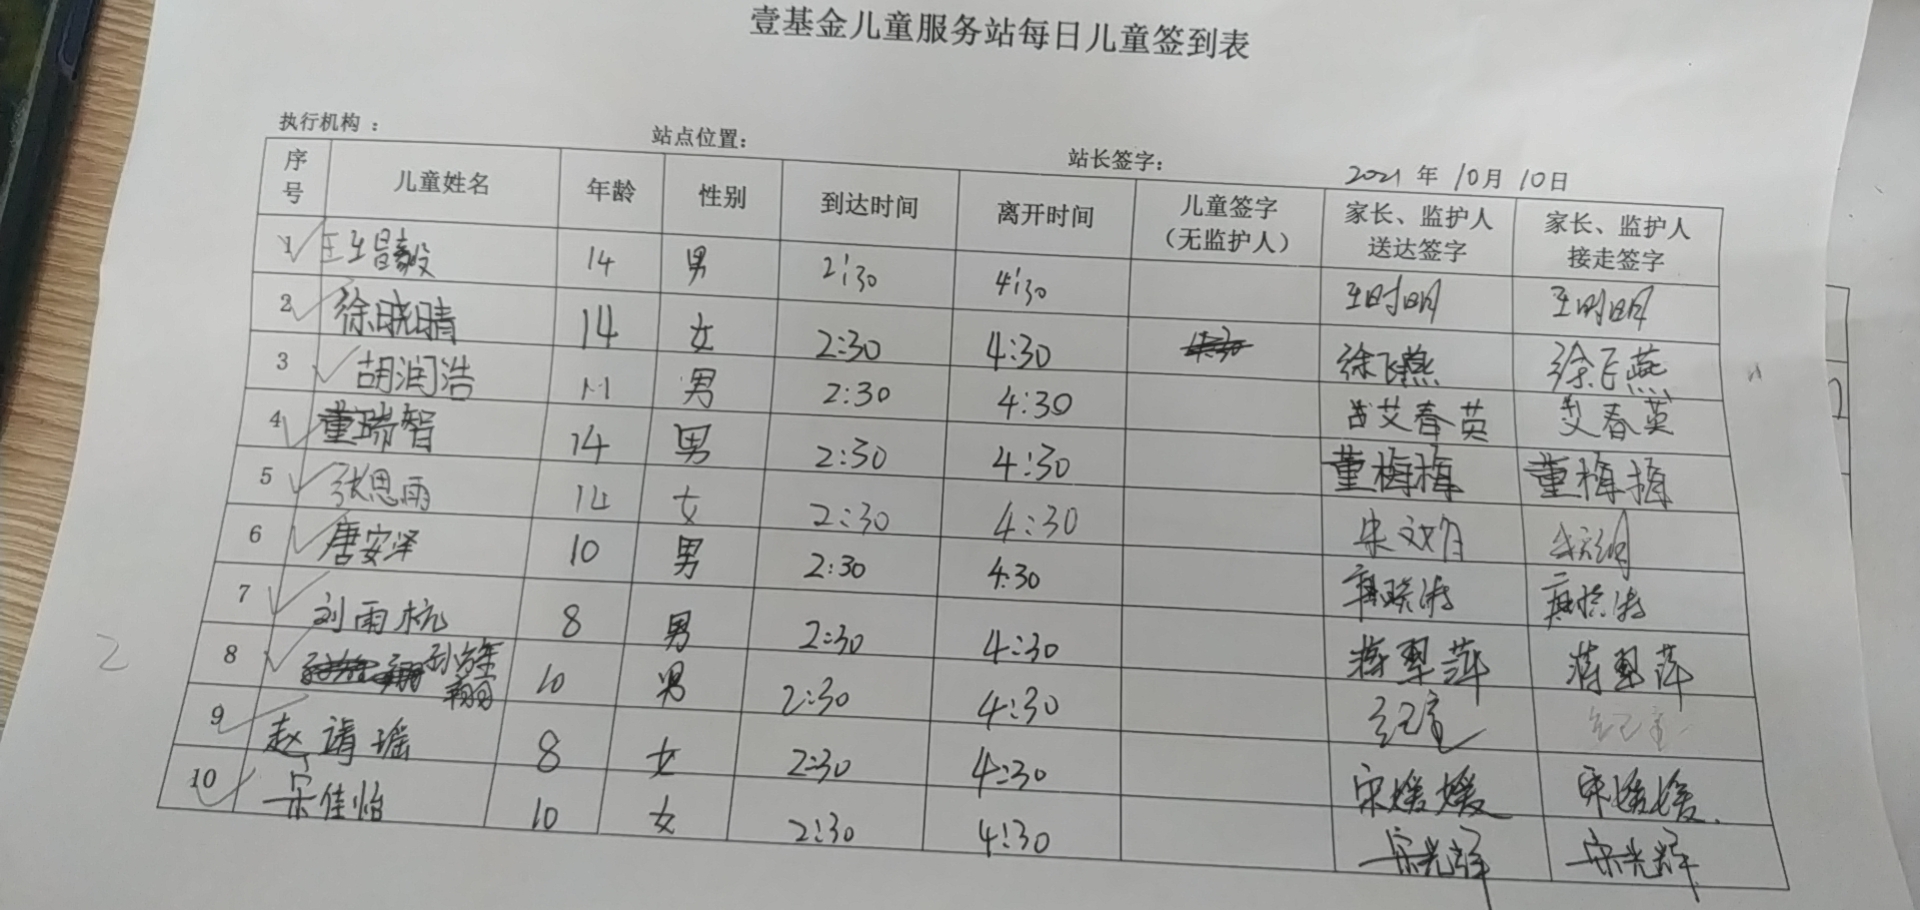 壹基金儿童服务站每日儿童签到表
执行机构： 站点位置： 站长签字： 2021 年 10月 10日
序号 儿童姓名 年龄 性别 到达时间 离开时间 儿童签字（无监护人） 家长、监护人送达签字 家长、监护人接走签字
1 王昌毅 14 男 2:30 4:30 王时明 王时明
2 徐晓晴 14 女 2:30 4:30 徐飞燕 徐飞燕
3 胡润浩 男 2:30 4:30 艾春英 艾春英
4 董瑞智 14 男 2:30 4:30 董梅梅 董梅梅
5 张思雨 14 女 2:30 4:30
6 唐安泽 10 男 2:30 4:30
7 刘雨杭 8 男 2:30 4:30 蒋翠萍 蒋翠萍
8 10 男 2:30 4:30
9 赵靖瑶 8 女 2:30 4:30 宋媛媛 宋媛媛
10 宋佳怡 10 女 2:30 4:30 宋光辉 宋光辉